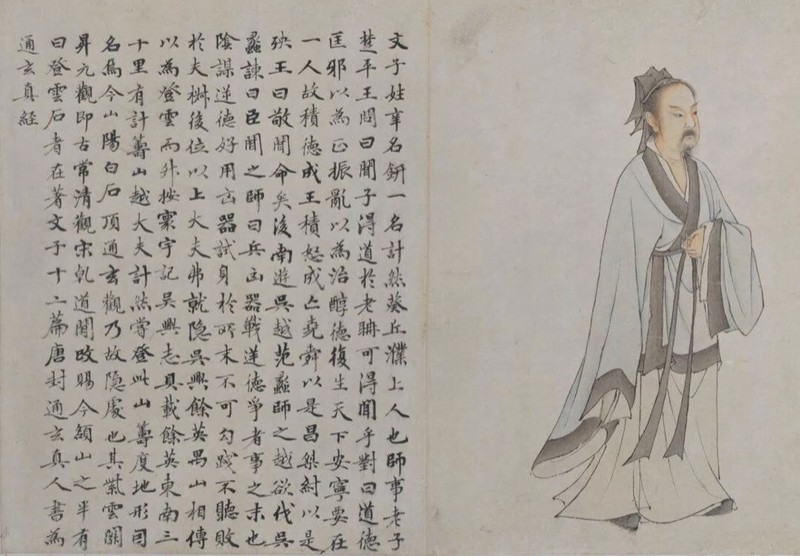 文子姓辛名銒一名計然葵丘濮上人也師事老子
楚平王問曰聞子得道於老聃可得聞乎對曰道德
匡邪以為正振亂以為治醇德復生天下安寧要在
一人故積德成王積怒成亡堯舜以是昌桀紂以是
殃王曰敬聞命矣後南遊吳越范蠡師之越欲伐吳
蠡諫曰臣聞之師曰兵凶器戰逆德爭者事之末也
陰謀逆德好用凶器試身於所末不可勾踐不聽敗
於夫椒後位以上大夫弗就隱吳興餘英禺山相傳
以為登雲而升按寰宇記吳興志具載餘英東南三
十里有計籌山越大夫計然嘗登此山籌度地形司
名焉今山陽白石頂通玄觀乃故隱處也其紫雲關
昇元觀即古常清觀宋乹道間改賜今額山之半有
曰登雲石者在著文子十二篇唐封通玄真人書為
通玄真經